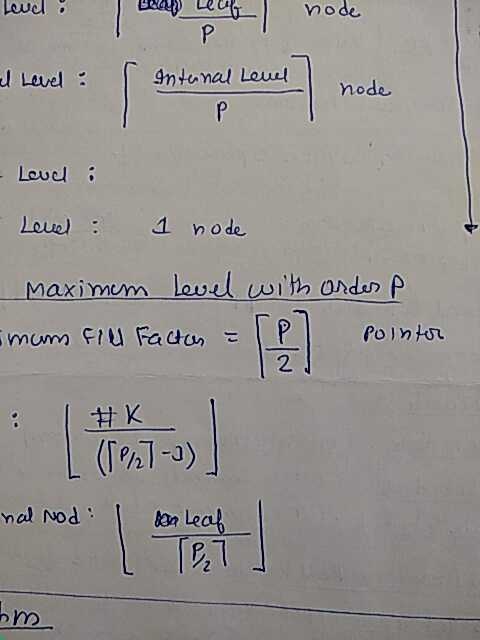 Level : ⌈ Leaf / P ⌉ node
l Level : ⌈ Internal Level / P ⌉ node
Level :
Level : 1 node
Maximum Level with order P
imum Fill Factor = ⌈ P / 2 ⌉ Pointer
: ⌊ # K / (⌈P/2⌉ -1) ⌋
nal Nod : ⌊ Leaf / ⌈P/2⌉ ⌋
hm